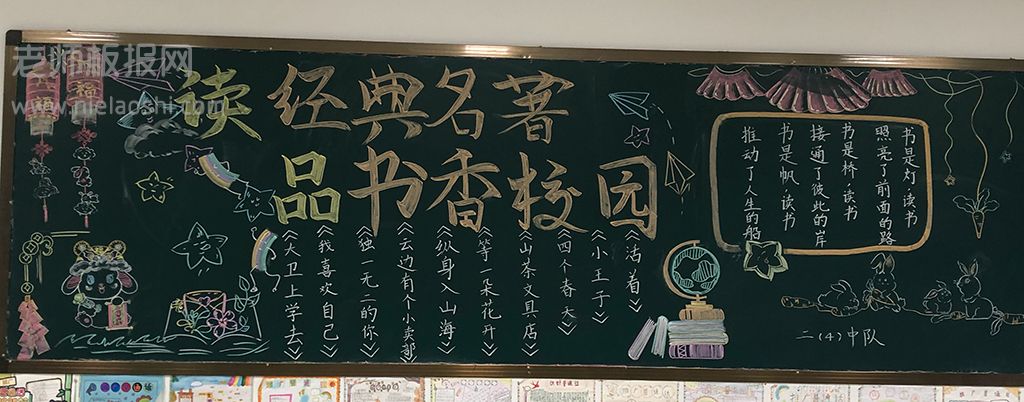 老师板报网
www.nielaoshi.com
读经典名著
品书香校园
《活着》
《小王子》
《四个春天》
《山茶文具店》
《等一朵花开》
《纵身入山海》
《云边有个小卖部》
《独一无二的你》
《我喜欢自己》
《大卫上学去》
书是灯,读书
照亮了前面的路
书是桥,读书
接通了彼此的岸
书是帆,读书
推动了人生的船
二(4)中队
福